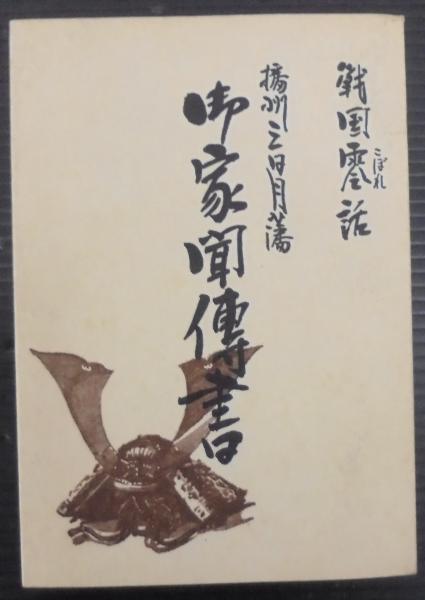 戦国零話
こぼれ
播州三日月藩
御家聞傳書